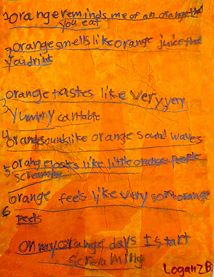 1 orange reminds me of an orange that
you eat
2 orange smells like orange juice that
you drink
3 orange tastes like very very
yummy
4 orange sounds like orange sound waves
5 orange looks like little orange people
screaming
orange feels like very soft orange
6 peels
on my orange days I start
screaming
Logan B.